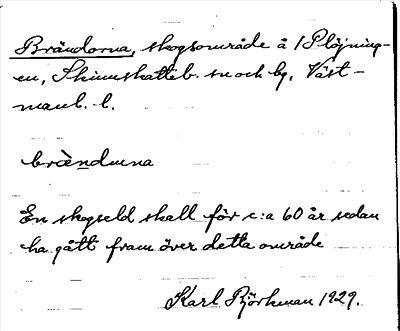 Brändorna, skogsområde å 1 Plöjning-
en, Skinnskatteb. sn och bg. Väst-
manl. l.
brä̀nduṇa
En skogseld skall för c:a 60 år sedan
ha gått fram över detta område
Karl Björkman 1929.